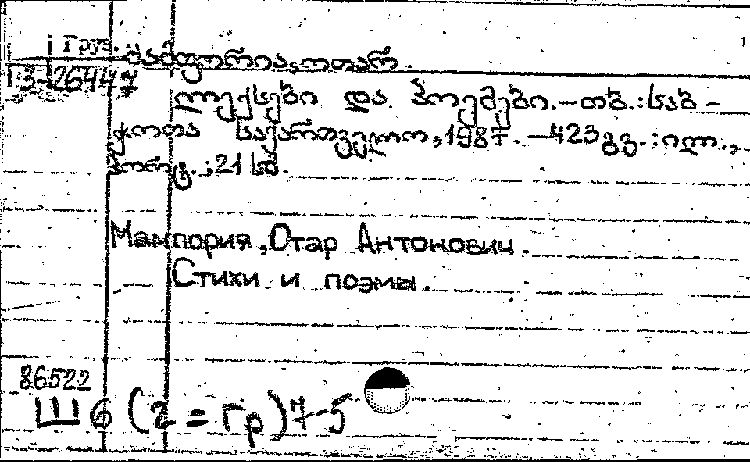 Груз.
მამფორია, ოთარ.
13-26447
ლექსები და პოემები. – თბ. : საბ-
ჭოთა საქართველო, 1987. – 423 გვ. : ილ.,
პორტ. ; 21 სმ.
Мампория, Отар Антонович.
Стихи и поэмы.
86522
Ш 6 (2 = Гр) 7-5